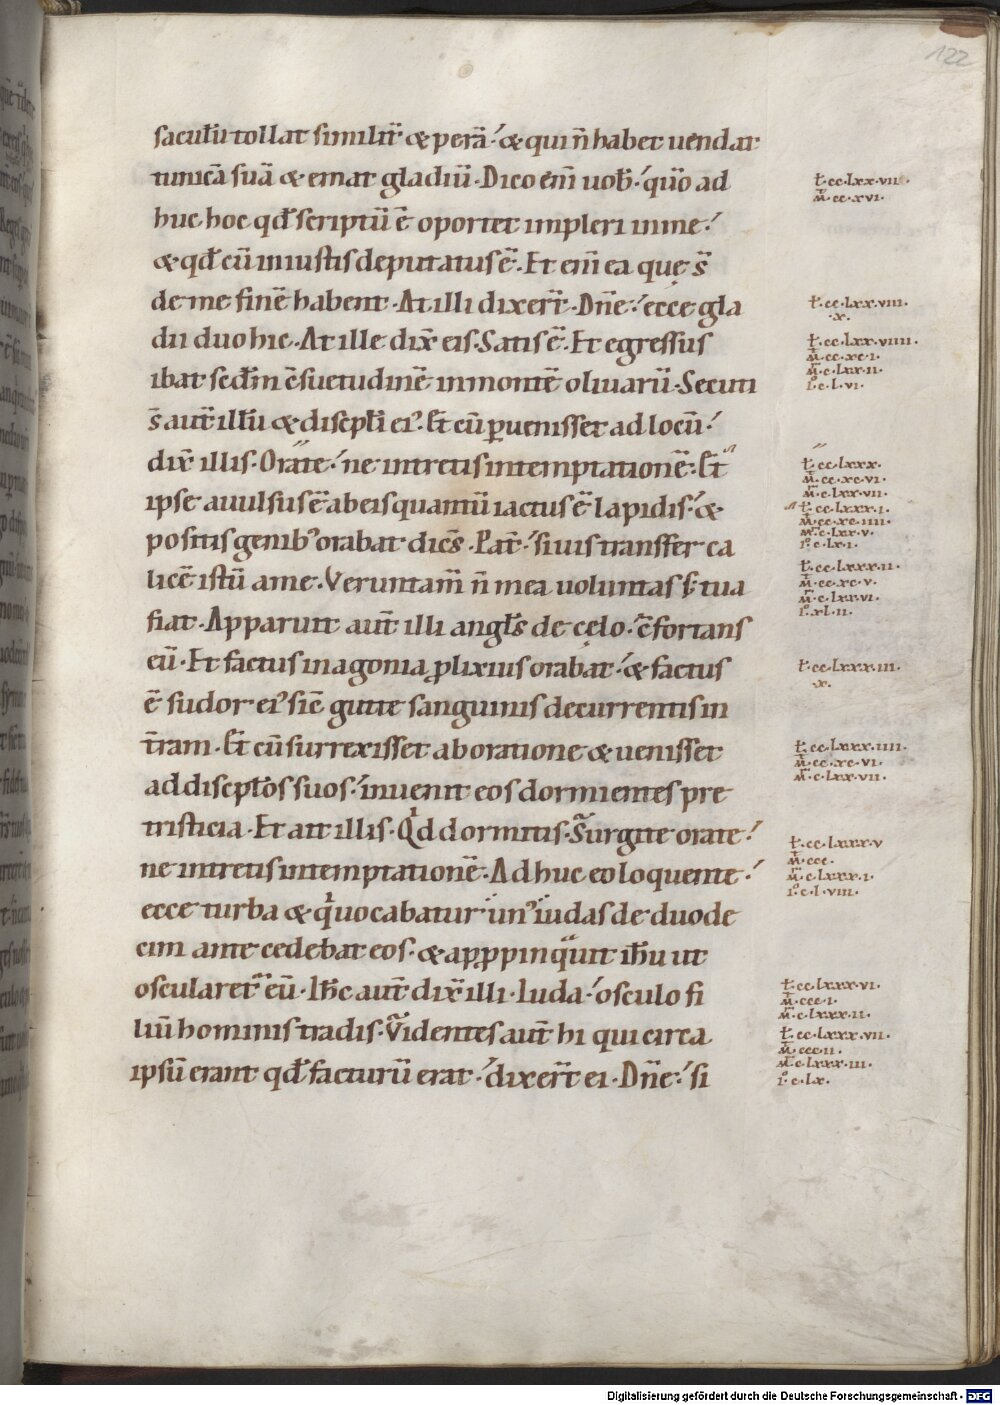 122
sacculū tollat similit̄ & perā. & qui n̄ habet uendat
tunicā suā & emat gladiū. Dico em̄ uob̄. qm̄o ad
huc hoc qd̄ scriptū ē oportet impleri in me.
& qd̄ cū iniustis deputatus ē. Et em̄ ea quę s̄
de me finē habent. At illi dixer̄. Dn̄e. ecce gla
dii duo hic. At ille dix̄ eis. Satis ē. Et egressus
ibat scdm̄ c̄suetudinē in montē oliuarū. Secuti
s̄ aut̄ illū & discipl̄i ei᾿. Et cū ꝑuenisset ad locū.
dix̄ illis. Orate. ne intretis in temptationē. Et
ipse auulsus ē ab eis quantū iactus ē lapidis. &
positis genib᾿ orabat dicēs. Pat̄. si uis transffer ca
licē istū a me. Veruntam̄ n̄ mea uoluntas s; tua
fiat. Apparuit aut̄ illi angl̄s de cęlo. c̄fortans
eū. Et factus in agonia ꝓlixius orabat. & factus
ē sudor ei᾿ sic̄ gutte sanguinis decurrentis in
t̄ram. Et cū surrexisset ab oratione & uenisset
ad discipl̄os suos. inuenit eos dormientes pre
tristicia. Et ait illis. Qd dormitis. Surgite orate.
ne intretis in temptationē. Adhuc eo loquente.
ecce turba & qͥ uocabatur un᾿ iudas de duode
cim antecedebat eos. & appꝓpinqͣuit ih̄u ut
oscularet̄ eū. Ih̄c aut̄ dix̄ illi. Iuda. osculo fi
liū hominis tradis. Videntes aut̄ hi qui circa
ipsū erant qd̄ facturū erat. dixer̄t ei. Dn̄e. si
ł. cc. lxx. vii.
m̄. cc. xvi.
ł. cc. lxx. viii.
.x.
ł. cc. lxx. viiii.
m̄. cc. xc. i.
m̄. c. lxx. ii.
i°. c. l. vi.
ł. cc. lxxx.
m̄. cc. xc. vi.
m̄. c. lxx. vii.
ł. cc. lxxx. i.
m̄. cc. xc. iiii.
m̄. c. lxx. v.
i°. c. lx. i.
ł. cc. lxxx. ii.
m̄. cc. xc. v.
m̄. c. lxx. vi.
i°. xl. ii.
ł. cc. lxxx. iii.
.x.
ł. cc. lxxx. iiii.
m̄. cc. xc. vi.
m̄. c. lxx. vii.
ł. cc. lxxx. v
m̄. ccc.
m̄. c. lxxx. i.
i°. c. l. viii.
ł. cc. lxxx. vi.
m̄. ccc. i.
m̄. c. lxxx. ii.
ł. cc. lxxx. vii.
m̄. ccc. ii.
m̄. c. lxxx. iii.
i°. c. lx.
Digitalisierung gefördert durch die Deutsche Forschungsgemeinschaft - DFG